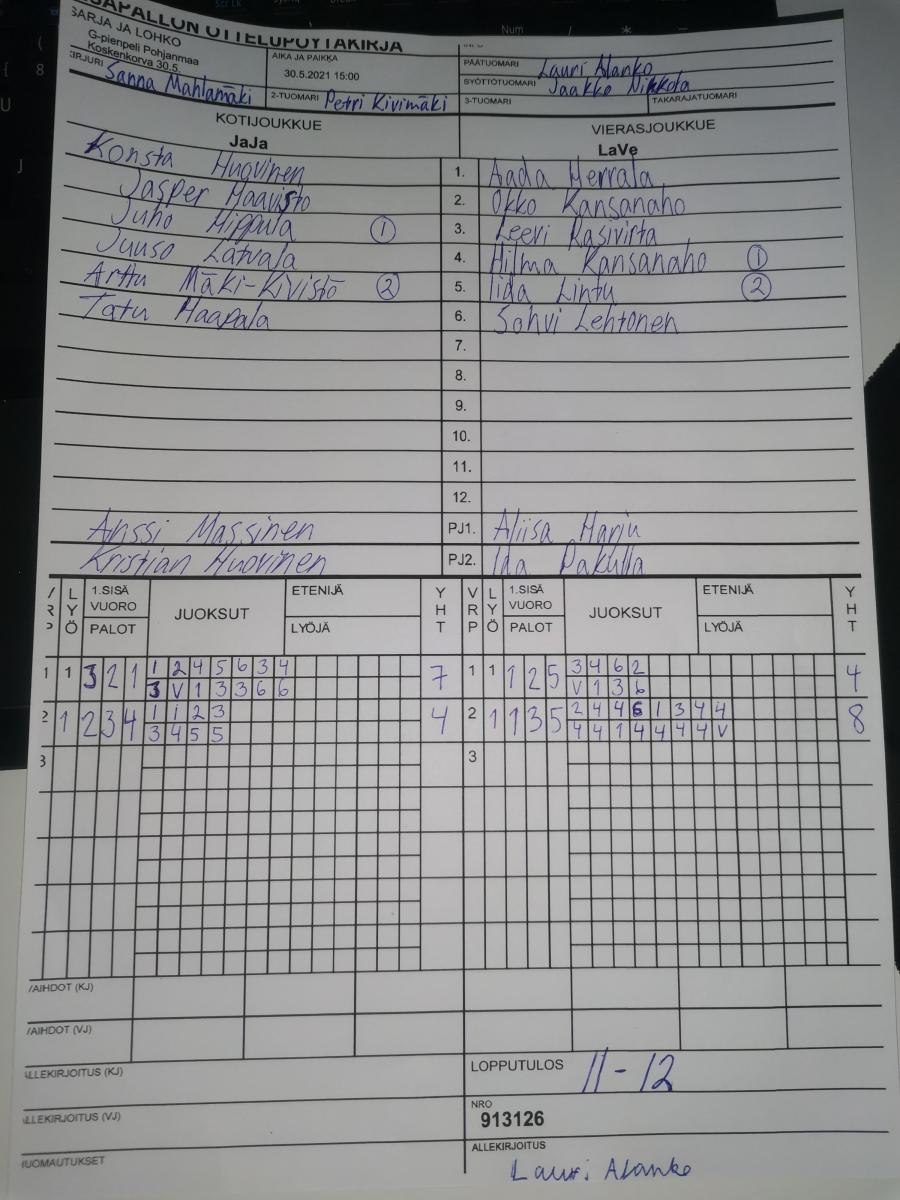 SAPALLON OTTELUPÖYTÄKIRJA
SARJA JA LOHKO
G-pienpeli Pohjanmaa
Koskenkorva 30.5.
AIKA JA PAIKKA
30.5.2021 15:00
PÄÄTUOMARI Lauri Alanko
SYÖTTÖTUOMARI Jaakko Nikkola
KIRJURI Sanna Mahlamäki
2-TUOMARI Petri Kivimäki
3-TUOMARI
TAKARAJATUOMARI
KOTIJOUKKUE
JaJa
VIERASJOUKKUE
LaVe
Konsta Huovinen 1. Aada Herrala
Jasper Haavisto 2. Okko Kansanaho
Juho Hippula ① 3. Leevi Rasivirta
Juuso Latvala 4. Hilma Kansanaho ①
Arttu Mäki-Kivistö ② 5. Iida Lintu ②
Tatu Haapala 6. Sohvi Lehtonen
7.
8.
9.
10.
11.
12.
Anssi Massinen PJ1. Aliisa Harju
Kristian Huovinen PJ2. Ida Pakulla
LYÖ 1.SISÄ VUORO PALOT JUOKSUT ETENIJÄ LYÖJÄ YHT VRP LYÖ 1.SISÄ VUORO PALOT JUOKSUT ETENIJÄ LYÖJÄ YHT
1 1 3 2 1 1 2 4 5 6 3 4 7 1 1 1 2 5 3 4 6 2 4
3 V 1 3 3 6 6 V 1 3 6
2 1 2 3 4 1 1 2 3 4 2 1 1 3 5 2 4 4 6 1 3 4 4 8
3 4 5 5 4 4 1 4 4 4 4 V
3 3
VAIHDOT (KJ)
VAIHDOT (VJ)
ALLEKIRJOITUS (KJ)
LOPPUTULOS 11-12
ALLEKIRJOITUS (VJ)
NRO
913126
HUOMAUTUKSET
ALLEKIRJOITUS
Lauri Alanko